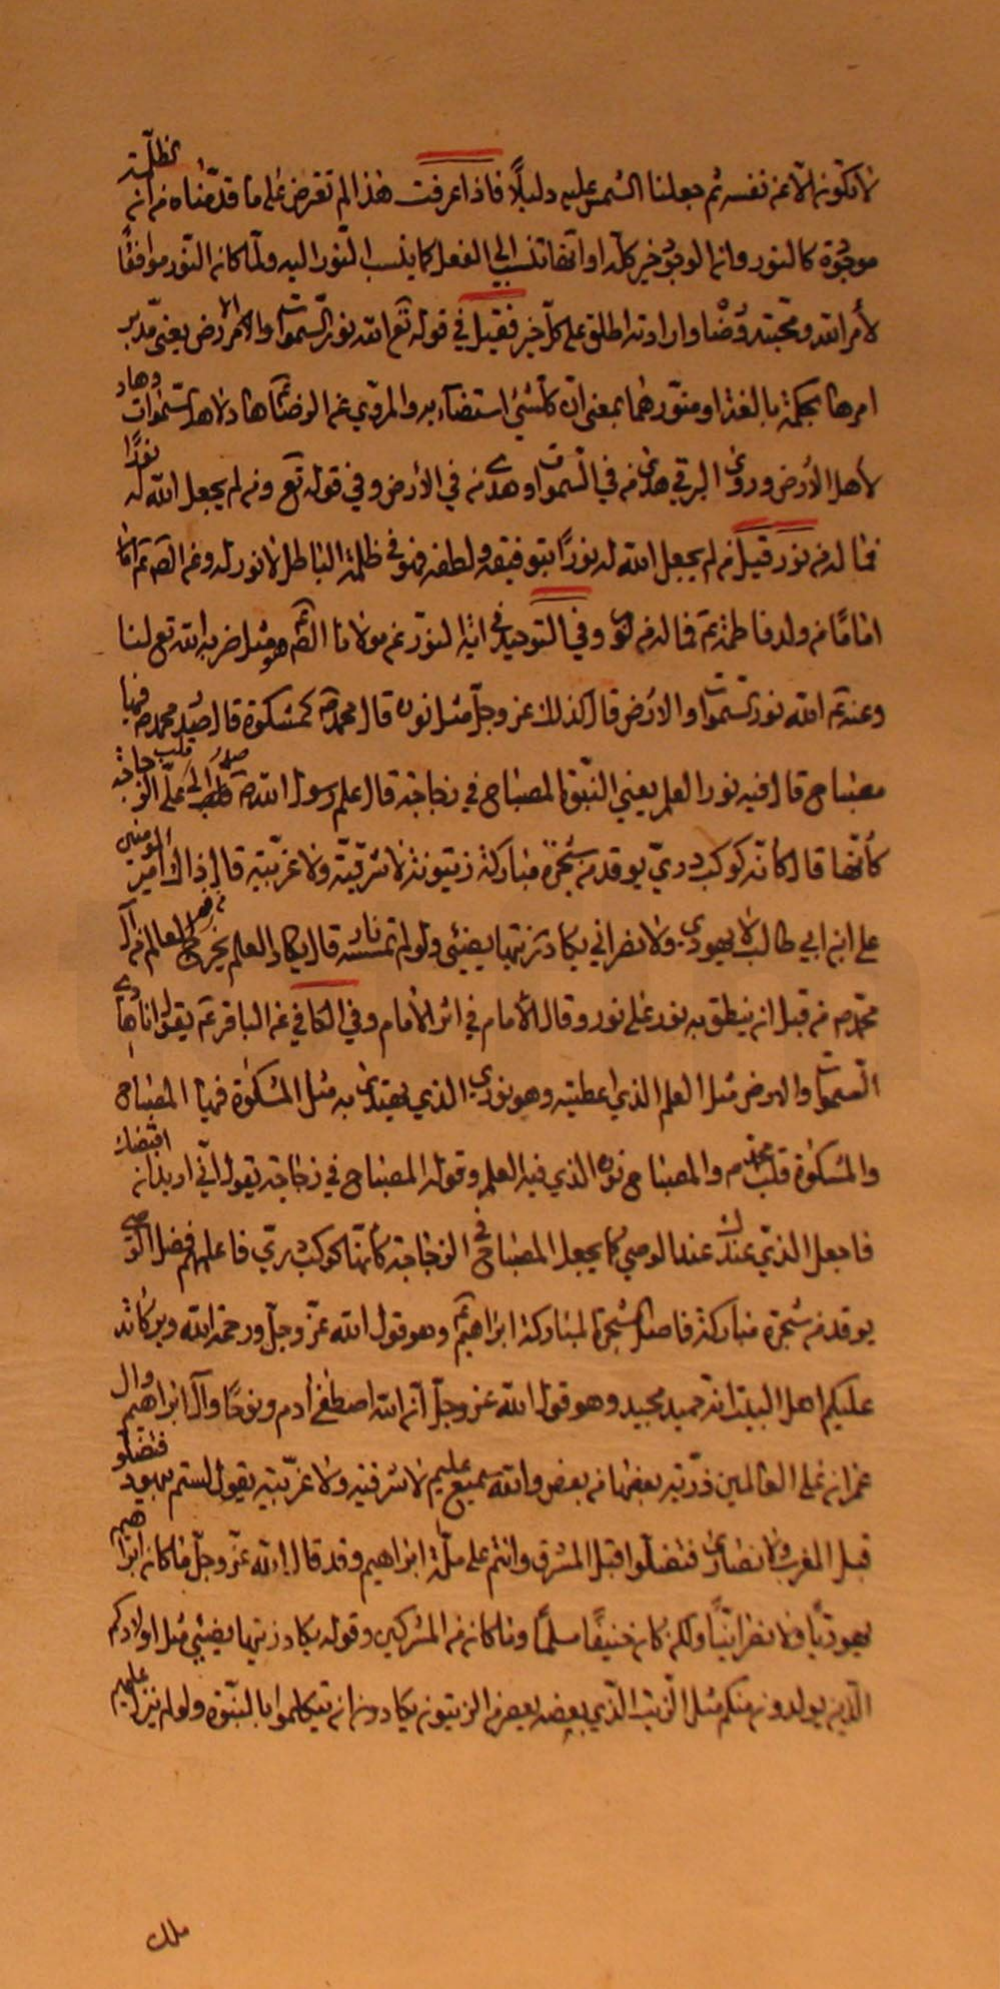 لا تكون الا عن نفسه ثم جعلنا الشمس عليه دليلاً فاذا عرفت هذا لم تعترض على ما قدمناه من ان الظلمة
موجودة كالنور وان الوجود خير كله او انها تنسب الى الفعل كما ينسب النور اليه ولما كان النور موافقًا
لأمر الله ومحبته ورضا وارادته اطلق على كل خير فقيل في قوله تع الله نور السموات والارض يعني مدبر
امرها بحكمة بالغة او منورهما بمعنى ان كل شيء استضاء به والمروي عن الرضا ع هاد لاهل السموات وهاد
لأهل الأرض وروى البرقي هدى من في السموات وهدى من في الأرض وفي قوله تع ومن لم يجعل الله له نورًا
فما له من نور قيل من لم يجعل الله له نورًا بتوفيقه ولطفه فهو في ظلمة الباطل لا نور له وعن الص ع
امامًا من ولد فاطمة ع فما له من نور وفي التوحيد في اية النور عن مولانا الص ع هو مثل ضربه الله تع لنا
وعنه ع الله نور السموات والارض قال كذلك عز وجل مثل نوره قال محمد ص كمشكوة قال صدر محمد ص فيها
مصباح قال فيه نور العلم يعني النبوة المصباح في زجاجة قال علم رسول الله ص صدر الى قلب علي الزجاجة
كأنها قال كانه كوكب دري يوقد من شجرة مباركة زيتونة لا شرقية ولا غربية قال ذاك امير المؤمنين
علي ابن ابي طالب لا يهودي ولا نصراني يكاد زيتها يضيئ ولو لم تمسسه نار قال يكاد العلم يخرج من فم العالم من آل
محمد ص من قبل ان ينطق به نور على نور وقال الأمام في اثر الأمام وفي الكافي عن الباقر ع يقول انا هادي
السموات والارض مثل العلم الذي اعطيته وهو نوري الذي يهتدى به مثل المشكوة فيها المصباح
والمشكوة قلب محمد ص والمصباح نوره الذي فيه العلم وقوله المصباح في زجاجة يقول اني اريد ان اقبضك
فاجعل الذي عندك عند الوصي كما يجعل المصباح في الزجاجة كأنها كوكب دري فاعلمهم فضل الوصي
يوقد من شجرة مباركة فاصل الشجرة المباركة ابراهيم ع وهو قول الله عز وجل رحمة الله وبركاته
عليكم اهل البيت انه حميد مجيد وهو قول الله عز وجل ان الله اصطفى آدم ونوحًا وآل ابراهيم وال
عمران على العالمين ذرية بعضها من بعض والله سميع عليم لا شرقية ولا غربية يقول لستم بيهود فتصلو
قبل المغرب ولا نصارى فتصلوا قبل المشرق وانتم على ملة ابراهيم وقد قال الله عز وجل ما كان ابراهيم
يهوديًا ولا نصرانيًا ولكن كان حنيفًا مسلمًا وما كان من المشركين وقوله يكاد زيتها يضيئ مثل اولادكم
الذين يولدون منكم مثل الزيت الذي يعصر من الزيتون يكادون ان يتكلموا بالنبوة ولو لم ينزل عليهم
ملك